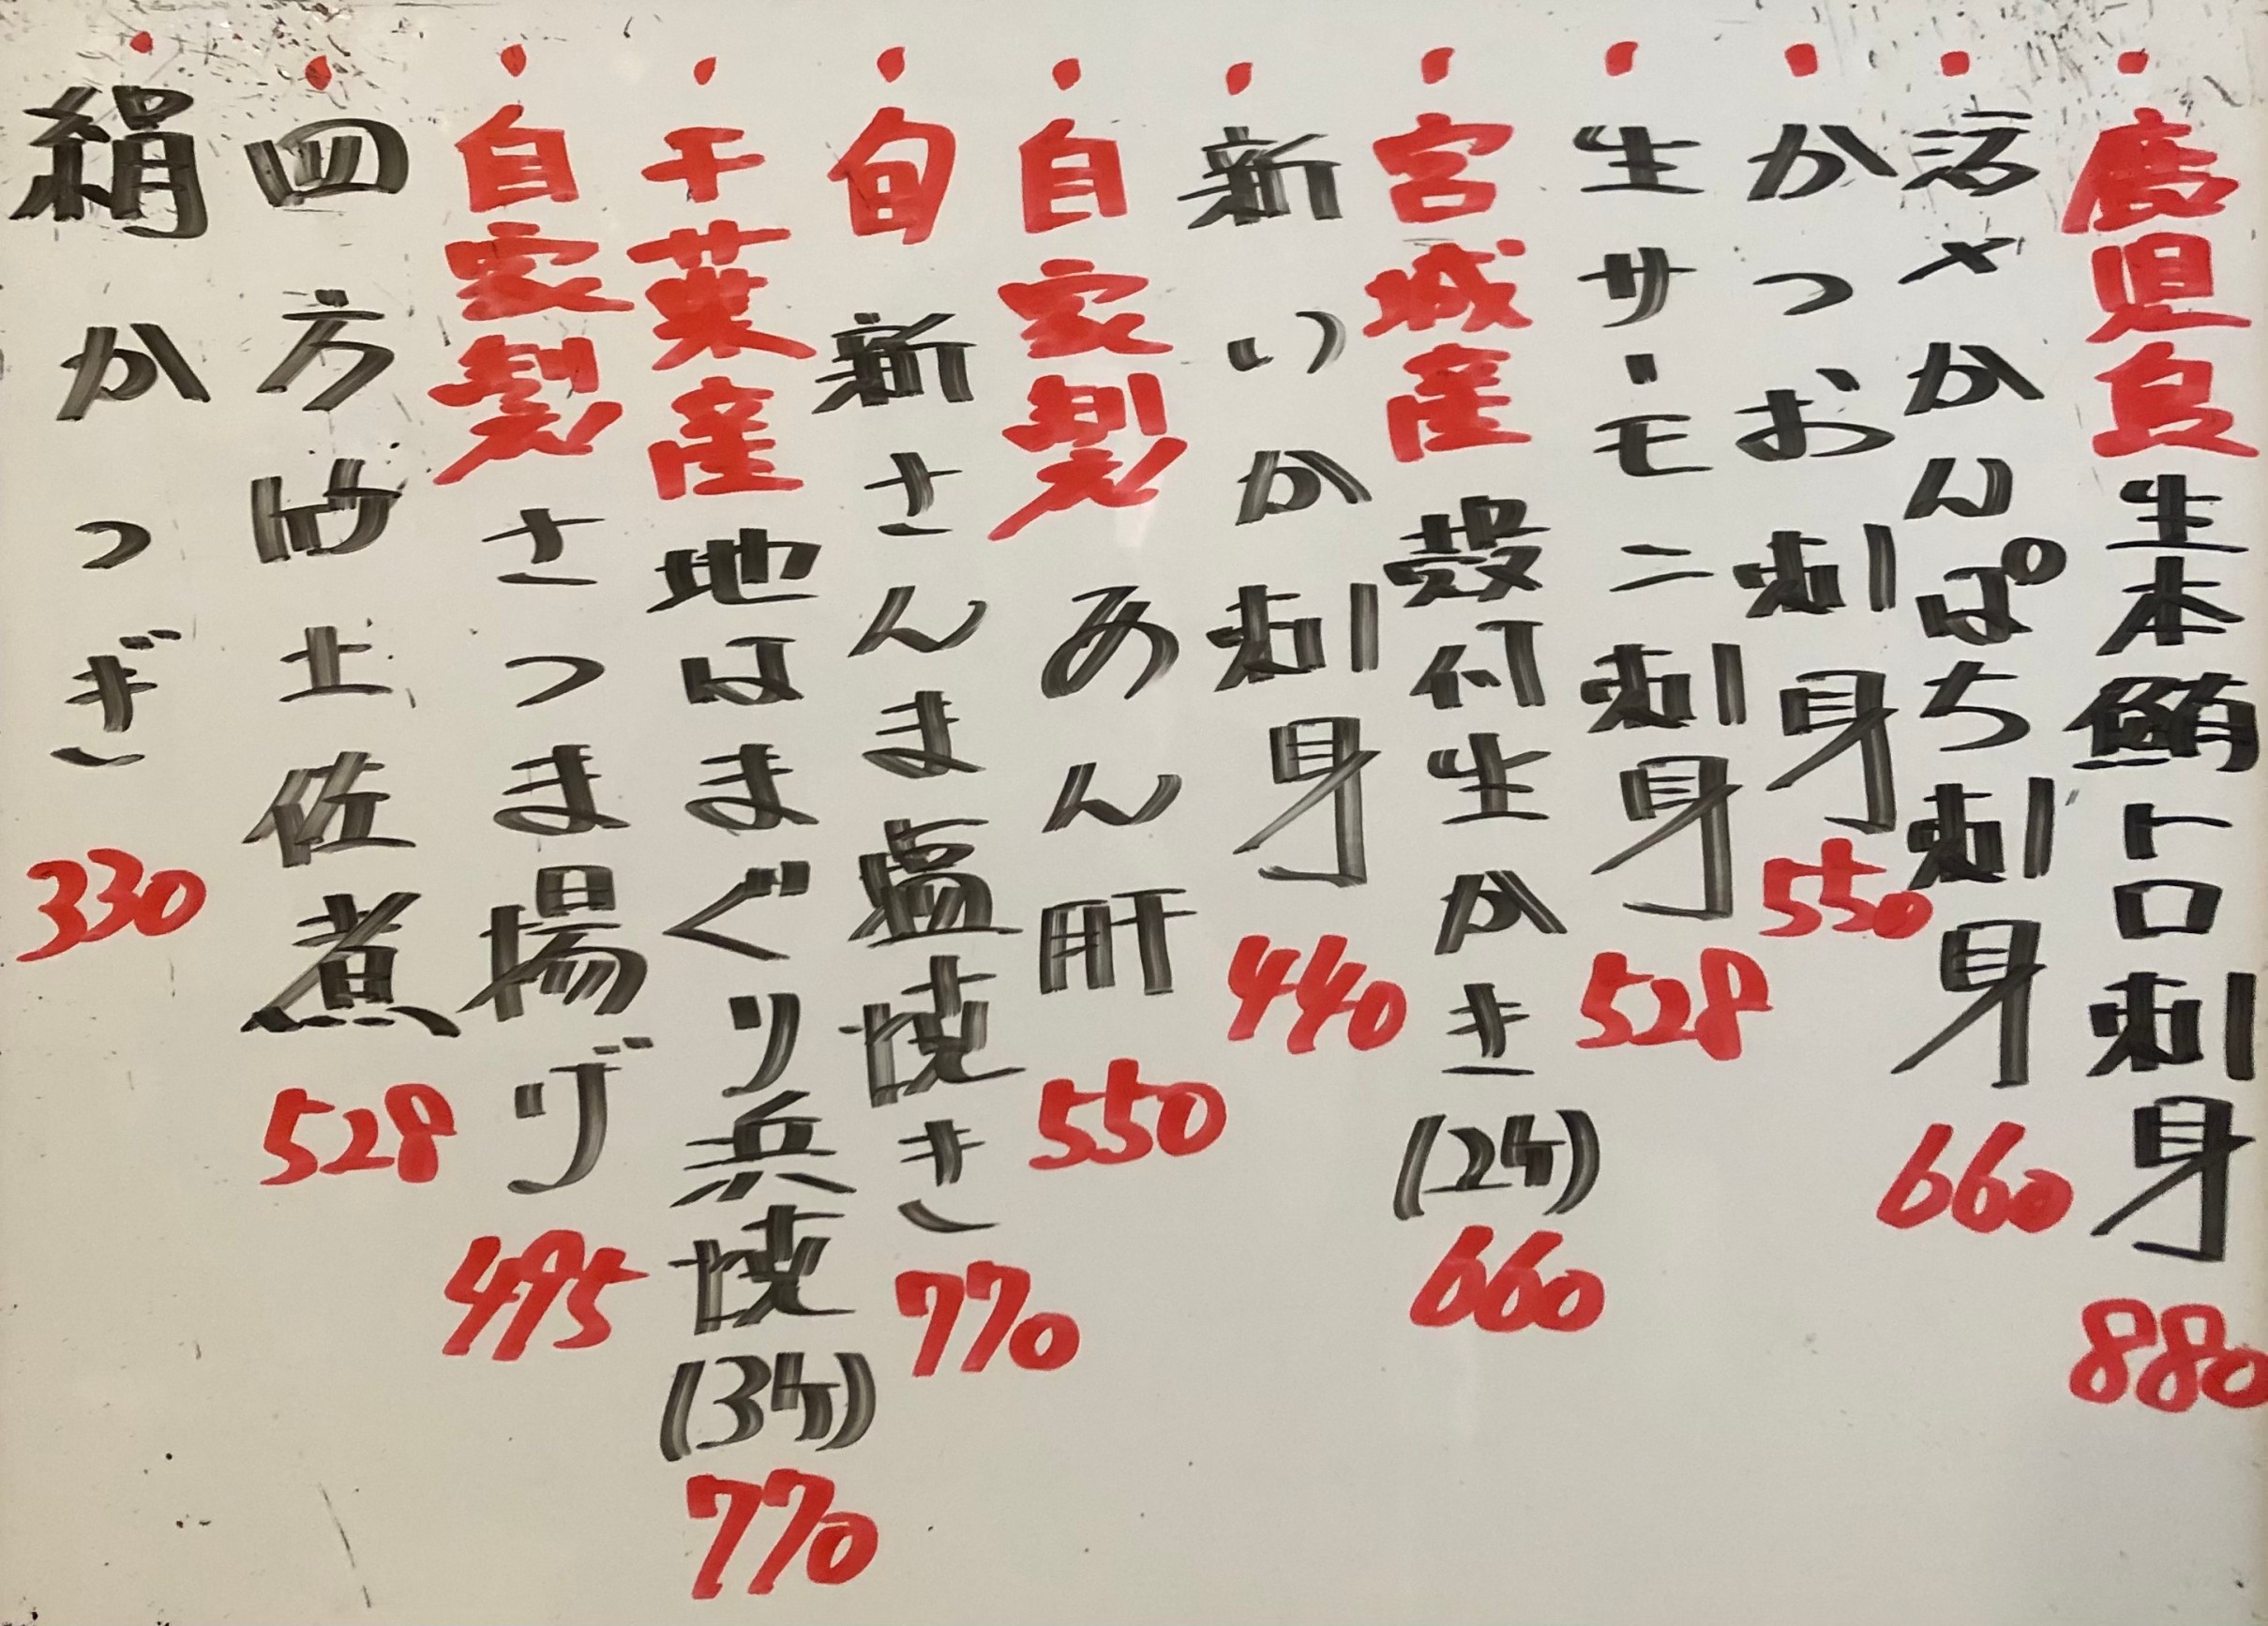 ・鹿児島生本鮪トロ刺身 880
・活〆かんぱち刺身 660
・かつお刺身 550
・生サーモン刺身 528
・宮城産殻付生かき(2ケ) 660
・新いか刺身 440
・自家製あん肝 550
・旬新さんま塩焼き 770
・千葉産地はまぐり浜焼(3ケ) 770
・自家製さつま揚げ 495
・四方竹土佐煮 528
・絹かつぎ 330